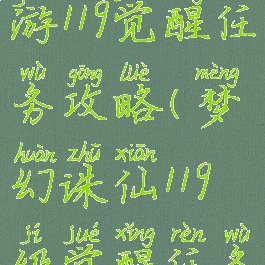 游119觉醒任
wù gōng lüè mèng
务攻略(梦
huàn zhū xiān
幻诛仙119
jí jué xǐng rèn wù
级觉醒任务